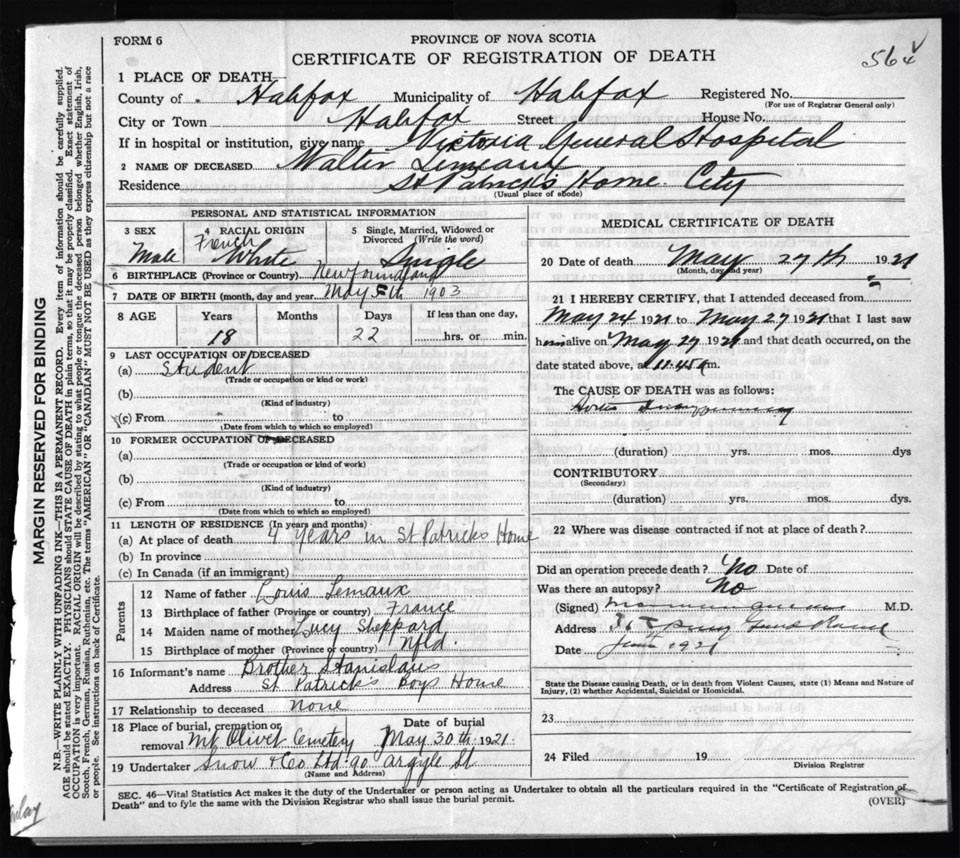 FORM 6
PROVINCE OF NOVA SCOTIA
CERTIFICATE OF REGISTRATION OF DEATH
564
1 PLACE OF DEATH
County of Halifax Municipality of Halifax Registered No.
(For use of Registrar General only)
City or Town Halifax Street House No.
If in hospital or institution, give name Victoria General Hospital
2 NAME OF DECEASED Walter Lemeaux
Residence St Patrick's Home City
(Usual place of abode)
PERSONAL AND STATISTICAL INFORMATION
3 SEX 4 RACIAL ORIGIN 5 Single, Married, Widowed or Divorced (Write the word)
Male French White Single
6 BIRTHPLACE (Province or Country) Newfoundland
7 DATE OF BIRTH (month, day and year) May 5th 1903
8 AGE Years Months Days If less than one day,
18 22 hrs. or min.
9 LAST OCCUPATION OF DECEASED
(a) Student
(Trade or occupation or kind of work)
(b)
(Kind of industry)
(c) From to
(Date from which to which so employed)
10 FORMER OCCUPATION OF DECEASED
(a)
(Trade or occupation or kind of work)
(b)
(Kind of industry)
(c) From to
(Date from which to which so employed)
11 LENGTH OF RESIDENCE (In years and months)
(a) At place of death 4 years in St Patricks Home
(b) In province
(c) In Canada (if an immigrant)
Parents
12 Name of father Louis Lemaux
13 Birthplace of father (Province or country) France
14 Maiden name of mother Lucy Sheppard
15 Birthplace of mother (Province or country) Nfld.
16 Informant's name Brother Stanislaus
Address St Patrick's Boys Home
17 Relationship to deceased None
18 Place of burial, cremation or removal Mt Olivet Cemetery Date of burial May 30th 1921
19 Undertaker Snow & Co Ltd 90 Argyle St
(Name and Address)
MEDICAL CERTIFICATE OF DEATH
20 Date of death May 27th 1921
(Month, day and year)
21 I HEREBY CERTIFY, that I attended deceased from
May 24 1921 to May 27 1921 that I last saw
him alive on May 27 1921 and that death occurred, on the
date stated above, at 11.45 m.
The CAUSE OF DEATH was as follows:
(duration) yrs. mos. dys
CONTRIBUTORY
(Secondary)
(duration) yrs. mos. dys.
22 Where was disease contracted if not at place of death?
Did an operation precede death? No Date of
Was there an autopsy? No
(Signed) M.D.
Address
Date 1921
State the Disease causing Death, or in death from Violent Causes, state (1) Means and Nature of Injury, (2) whether Accidental, Suicidal or Homicidal.
23
24 Filed 19
Division Registrar
SEC. 46—Vital Statistics Act makes it the duty of the Undertaker or person acting as Undertaker to obtain all the particulars required in the "Certificate of Registration of
Death" and to fyle the same with the Division Registrar who shall issue the burial permit.
(OVER)
MARGIN RESERVED FOR BINDING
N.B.—WRITE PLAINLY WITH UNFADING INK—THIS IS A PERMANENT RECORD. Every item of information should be carefully supplied.
AGE should be stated EXACTLY. PHYSICIANS should STATE CAUSE OF DEATH in plain terms, so that it may be properly classified. Exact statement of
OCCUPATION is very important. RACIAL ORIGIN will be described by stating to what people or tongue the deceased person belonged whether English, Irish,
Scotch, French, German, Russian, Ruthenian, etc. The terms "AMERICAN" or "CANADIAN" MUST NOT BE USED as they express citizenship but not a race
or people. See instructions on back of Certificate.